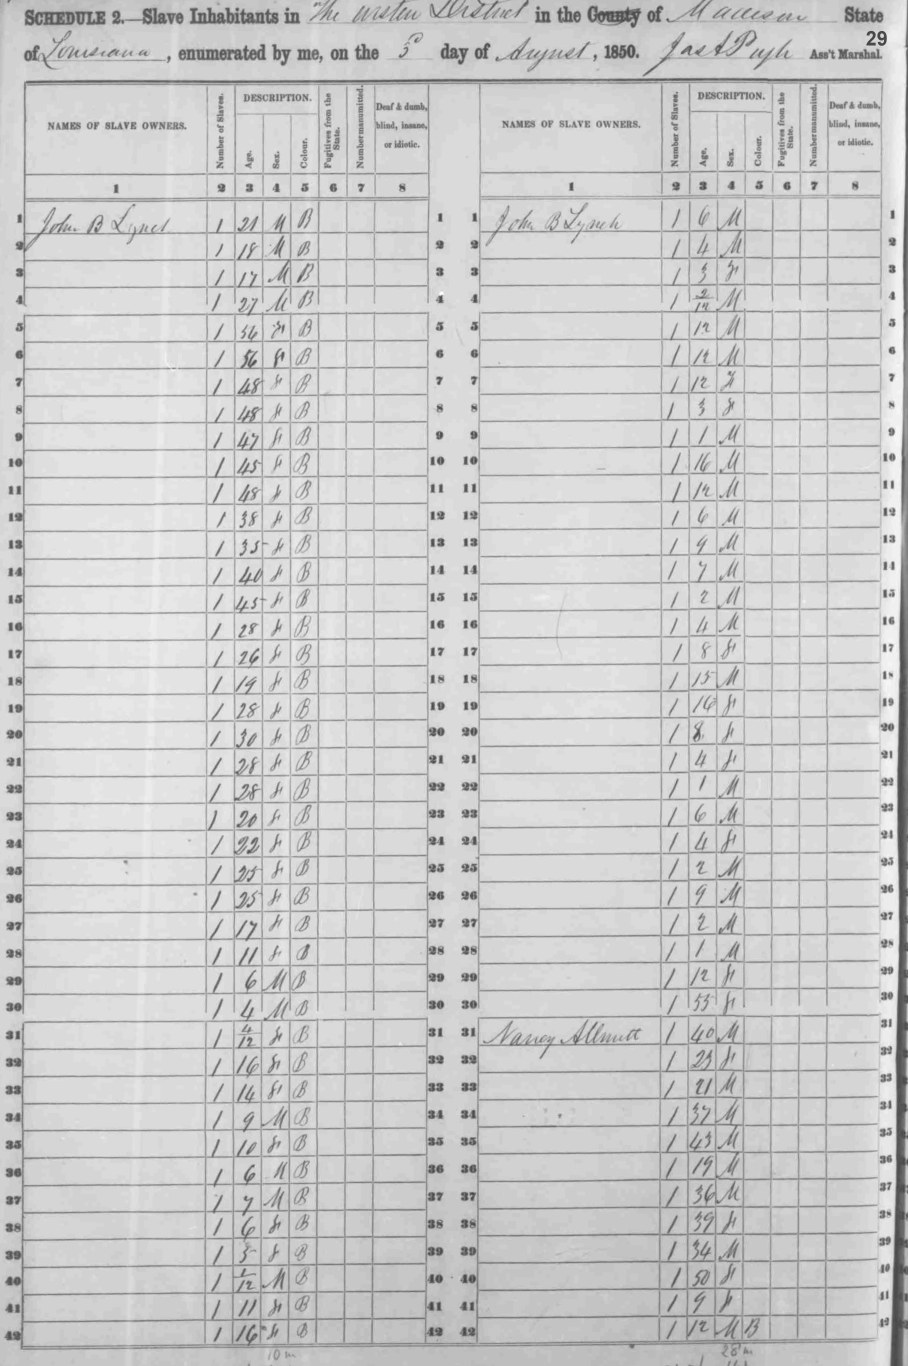 SCHEDULE 2.—Slave Inhabitants in The District in the County of Madison State
29
of Louisiana, enumerated by me, on the 5 day of August, 1850. Jas A Pugh Ass't Marshal.
NAMES OF SLAVE OWNERS. Number of Slaves. DESCRIPTION. Age. Sex. Colour. Fugitives from the State. Number manumitted. Deaf & dumb, blind, insane, or idiotic. NAMES OF SLAVE OWNERS. Number of Slaves. DESCRIPTION. Age. Sex. Colour. Fugitives from the State. Number manumitted. Deaf & dumb, blind, insane, or idiotic.
1 2 3 4 5 6 7 8 1 2 3 4 5 6 7 8
1 John B Lynch 1 21 M B 1 1 John B Lynch 1 6 M 1
2 1 18 M B 2 2 1 4 M 2
3 1 17 M B 3 3 1 3 F 3
4 1 27 M B 4 4 1 2/12 M 4
5 1 56 F B 5 5 1 12 M 5
6 1 56 F B 6 6 1 12 M 6
7 1 48 F B 7 7 1 12 F 7
8 1 48 F B 8 8 1 3 F 8
9 1 47 F B 9 9 1 1 M 9
10 1 45 F B 10 10 1 16 M 10
11 1 48 F B 11 11 1 12 M 11
12 1 38 F B 12 12 1 6 M 12
13 1 35 F B 13 13 1 9 M 13
14 1 40 F B 14 14 1 7 M 14
15 1 45 F B 15 15 1 2 M 15
16 1 28 F B 16 16 1 4 M 16
17 1 26 F B 17 17 1 8 F 17
18 1 19 F B 18 18 1 15 M 18
19 1 28 F B 19 19 1 16 F 19
20 1 30 F B 20 20 1 8 F 20
21 1 28 F B 21 21 1 4 F 21
22 1 28 F B 22 22 1 1 M 22
23 1 20 F B 23 23 1 6 M 23
24 1 22 F B 24 24 1 4 F 24
25 1 25 F B 25 25 1 2 M 25
26 1 25 F B 26 26 1 9 M 26
27 1 17 F B 27 27 1 2 M 27
28 1 11 F B 28 28 1 1 M 28
29 1 6 M B 29 29 1 12 F 29
30 1 4 M B 30 30 1 55 F 30
31 1 4/12 F B 31 31 Nancy 1 40 M 31
32 1 16 F B 32 32 1 23 F 32
33 1 14 F B 33 33 1 21 M 33
34 1 9 M B 34 34 1 37 M 34
35 1 10 F B 35 35 1 43 M 35
36 1 6 M B 36 36 1 19 M 36
37 1 7 M B 37 37 1 36 M 37
38 1 6 F B 38 38 1 39 F 38
39 1 5 F B 39 39 1 34 M 39
40 1 1/12 M B 40 40 1 50 F 40
41 1 11 F B 41 41 1 9 F 41
42 1 16 F B 42 42 1 12 M B 42
10 m 28 m